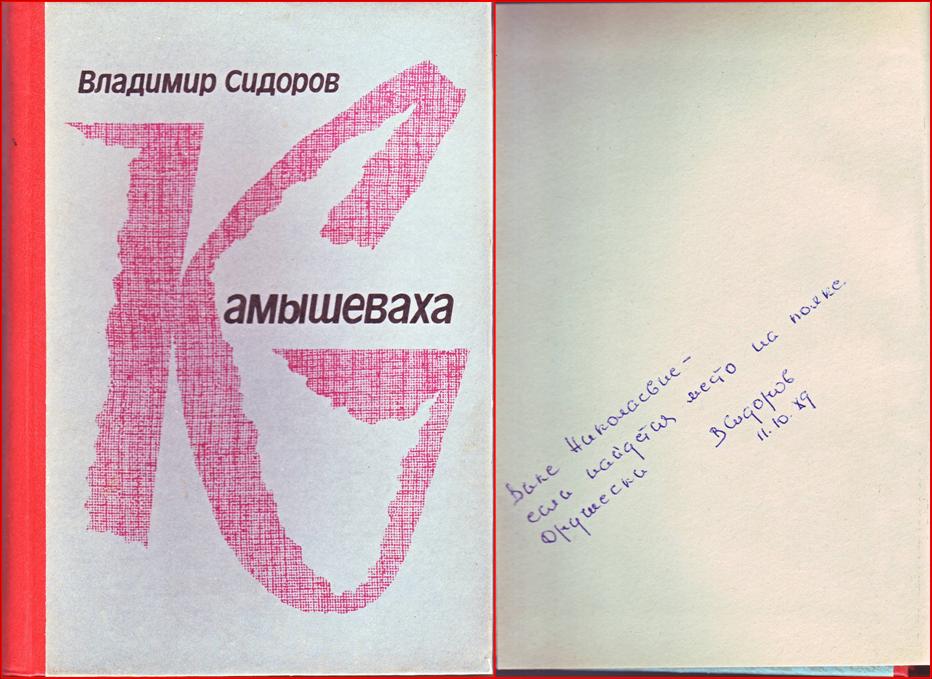 Владимир Сидоров
Камышеваха
Николаевне –
если найдётся место на полке.
Дружески ВСидоров
11.10.89